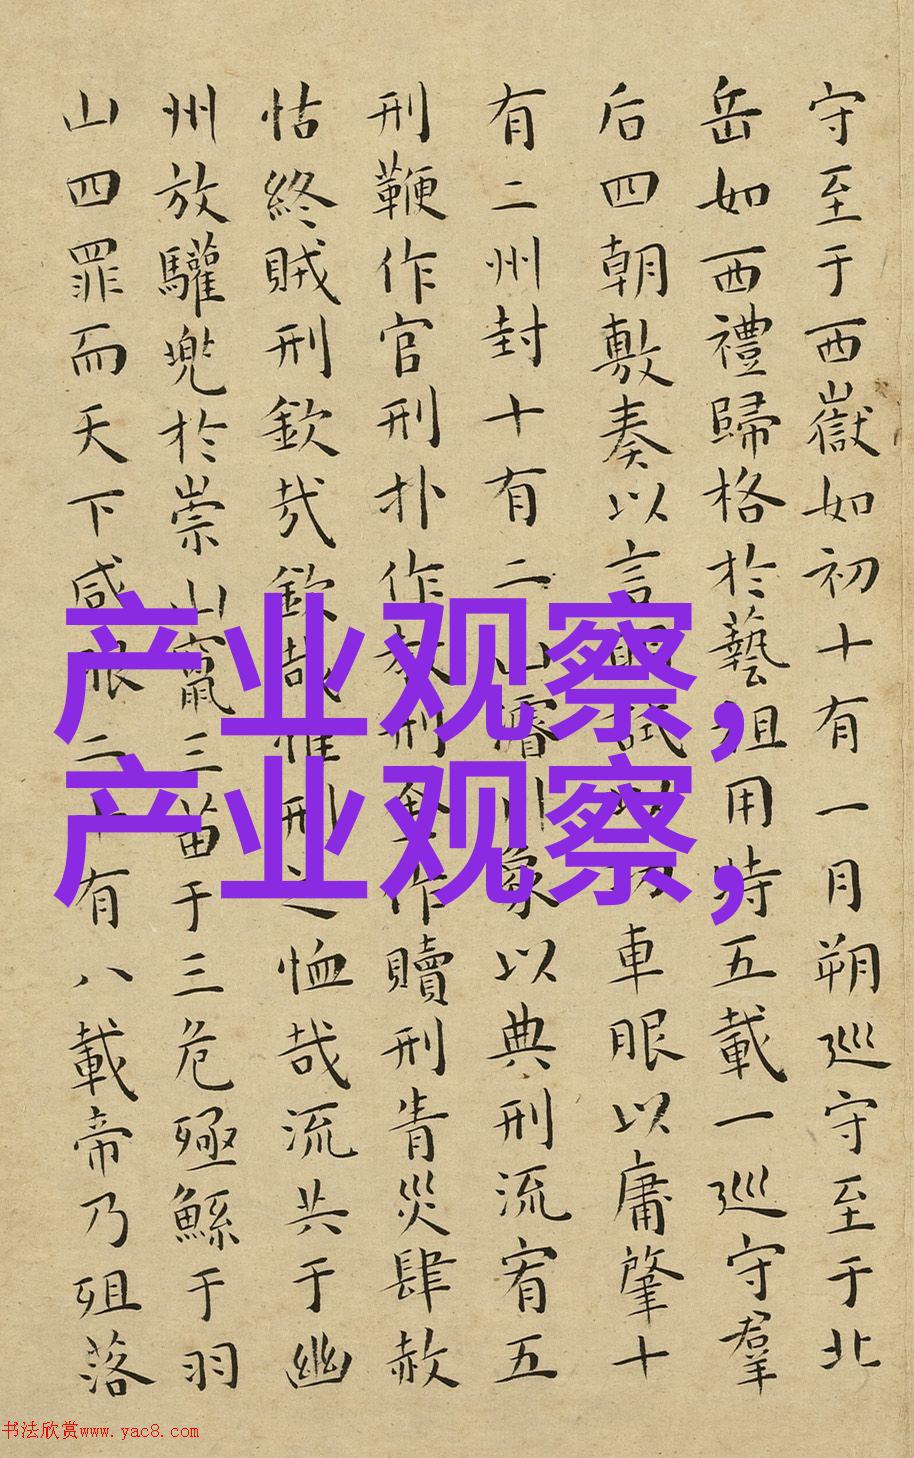 守至于西嶽如初十有一月朔巡守至于北
岳如西禮歸格於藝祖用特五載一巡守羣
后四朝敷奏以言試以功車服以庸肇十
有二州封十有二山濬川象以典刑流宥五
刑鞭作官刑扑作教刑金作贖刑眚災肆赦
怙終賊刑欽哉欽哉惟刑之恤哉流共于幽
州放驩兜於崇山竄三苗于三危殛鯀于羽
山四罪而天下咸服二十有八載帝乃殂落
产业观察,
产业观察,
书法欣赏www.yac8.com